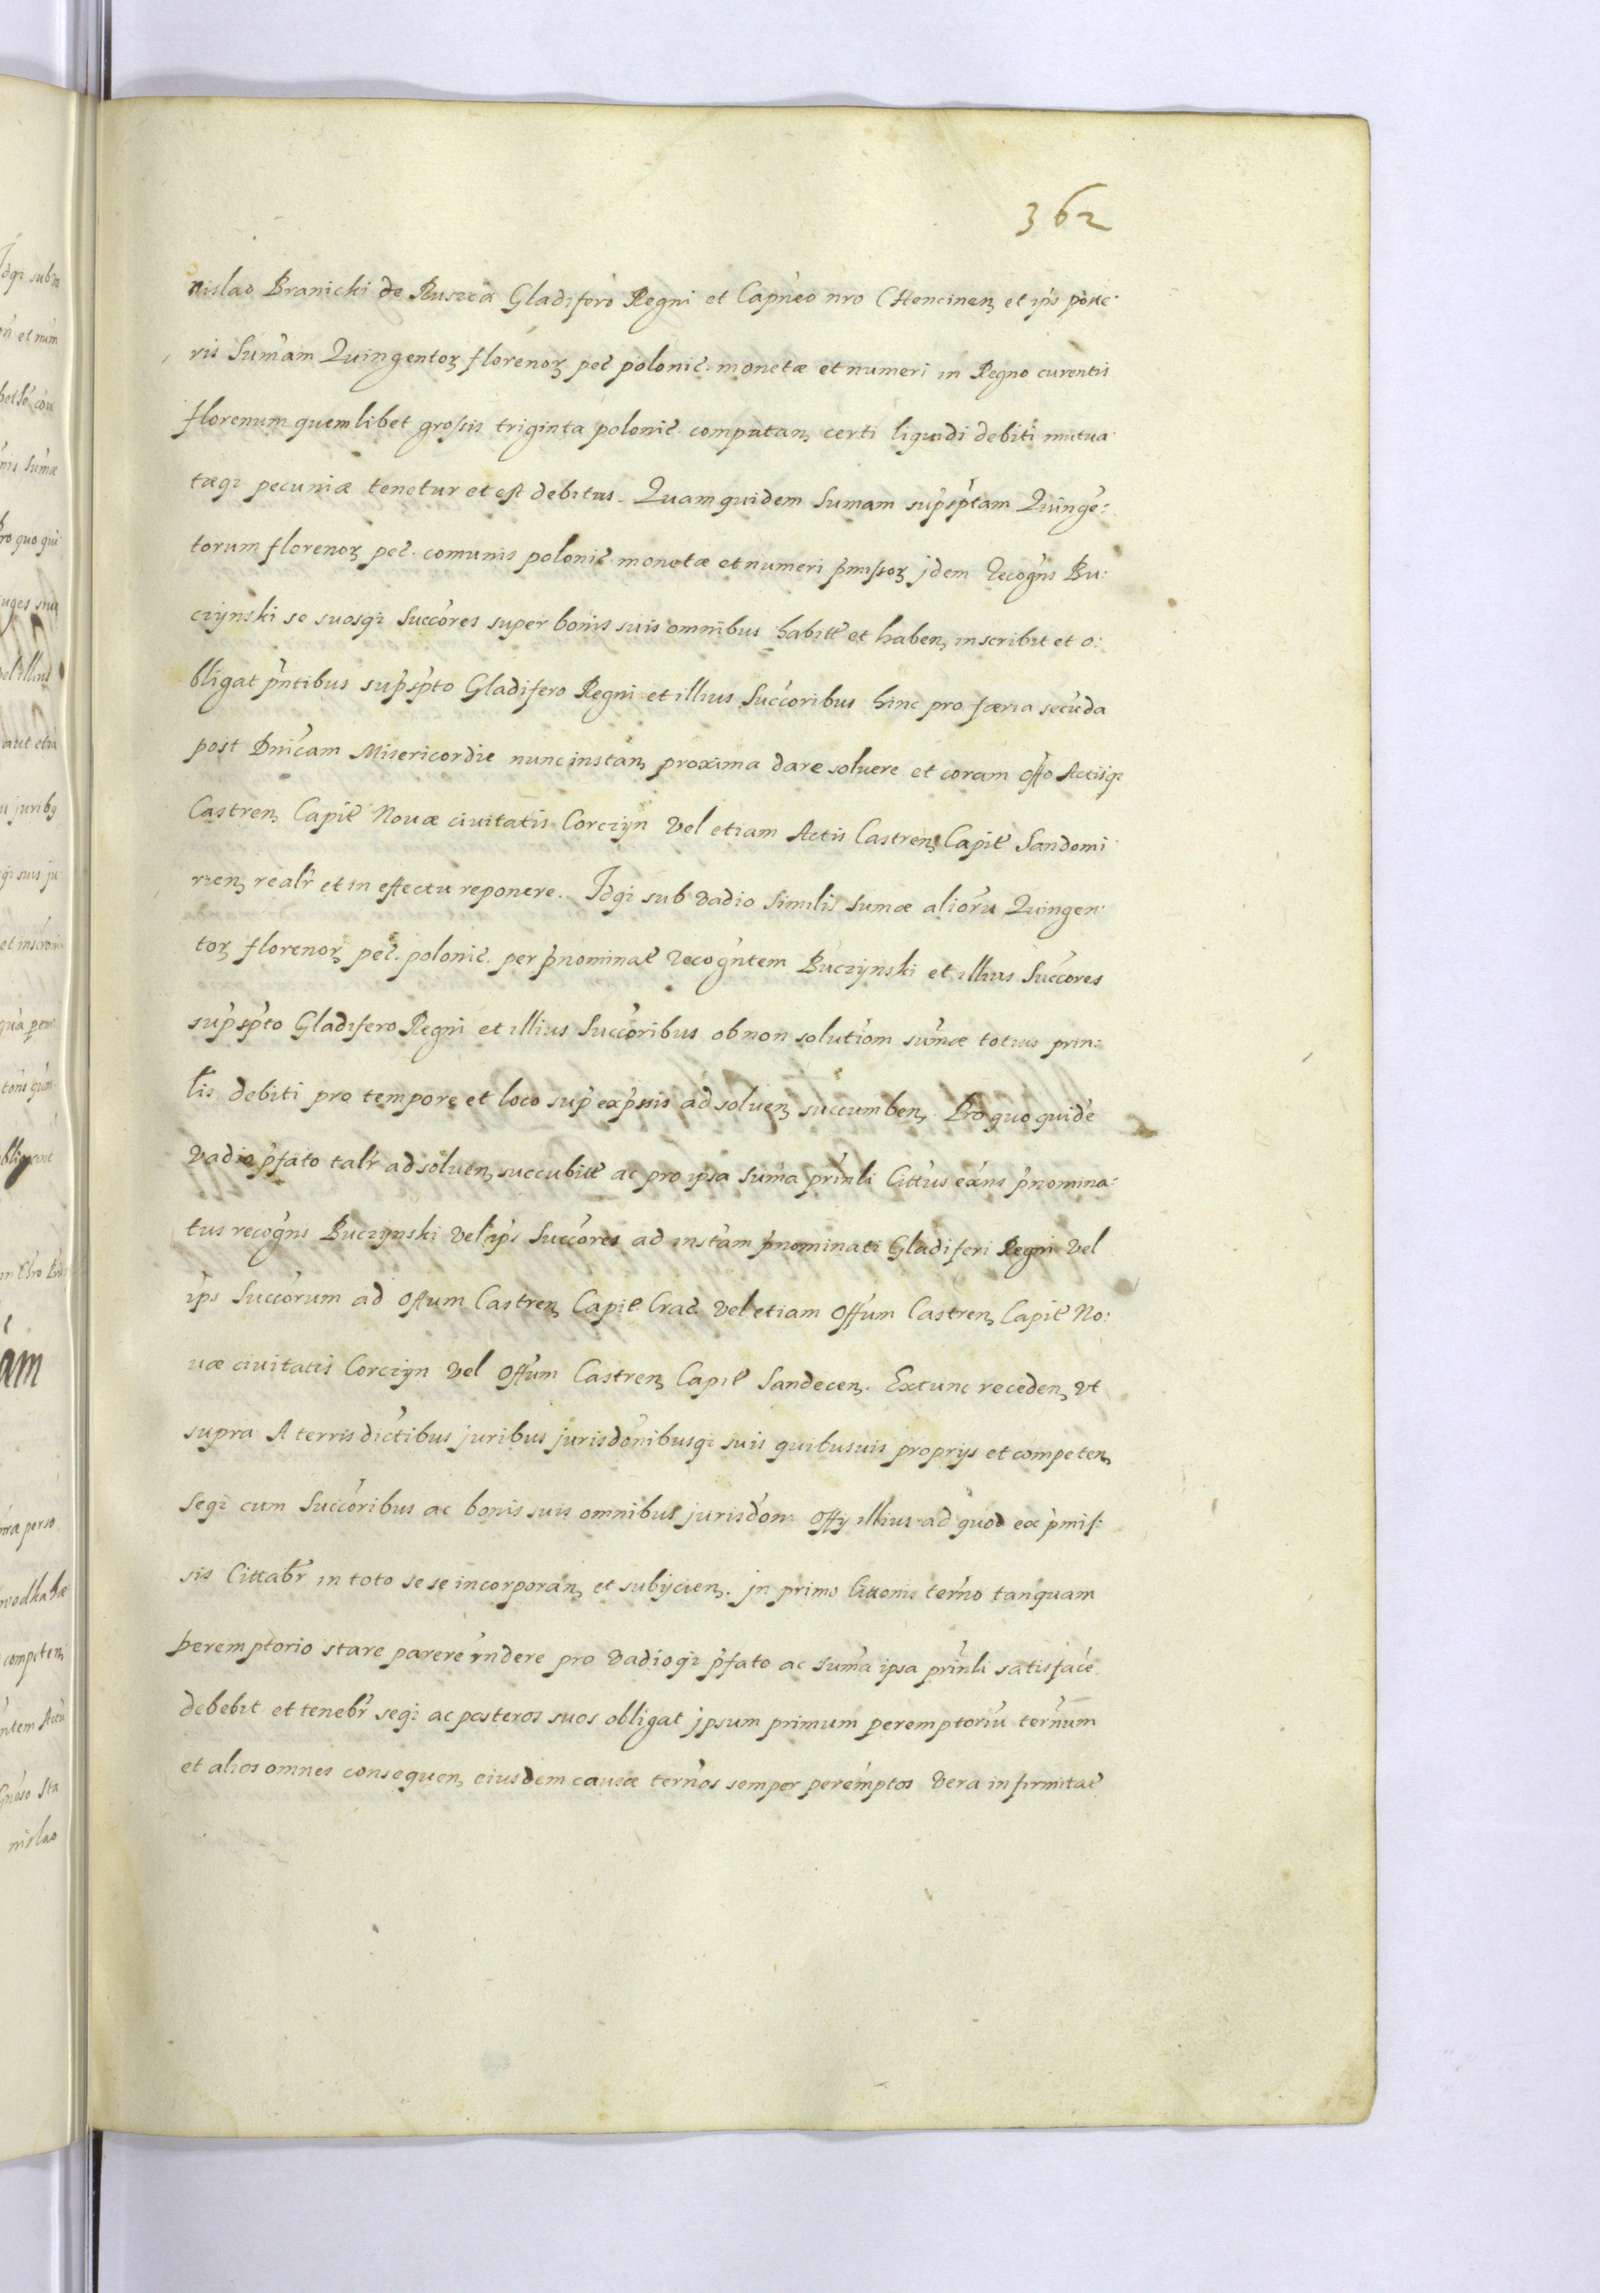 362
nislao Branicki de Ruszcza Gladifero Regni et Capneo nro Chencinen et ips poste:
ris Sumam Quingentor florenor pec polonic. monetæ et numeri in Regno curentis
florenum quemlibet grossis triginta polonic. computan, certi liquidi debiti mutua
tæqz pecuniæ tenetur et est debitus. Quam quidem Sumam supsptam Quinge:
torum florenor pec. comunis polonic. monetæ et numeri pmissor jdem Recogns Bu:
czynski se suosqz Succores super bonis suis omnibus habitt et haben, inscribit et o:
bligat pntibus supspto Gladifero Regni et illius Succoribus hinc pro færia secuda
post Dnicam Misericordie nunc instan, proxima dare soluere et coram Offo Actisqz
Castren, Capit Nouæ ciuitatis Corczyn vel etiam Actis Castren, Capit Sandomi
rien, realr et in effectu reponere. Idqz sub vadio similis sumæ alioru Quingen
tor florenor pec. polonic. per pnominat recogntem Buczynski et illius Succores
supspto Gladifero Regni et illius Succoribus ob non solutiom sumæ totius prin:
lis debiti pro tempore et loco sup expssis ad soluen, succumben, Pro quo quide
vadio pfato talr ad soluen, succubitt ac pro ipsa suma prinli Cittus exns pnomina:
tus recogns Buczynski vel ips Succores ad instam pnominati Gladiferi Regni vel
ips Succorum ad Offum Castren, Capit Crac vel etiam Offum Castren, Capit No:
uæ ciuitatis Corczyn vel Offum Castren, Capit Sandecen,. Extunc receden, vt
supra A terris dictibus juribus jurisdonibusqz suis quibusuis proprijs et competen,
Seqz cum Succoribus ac bonis suis omnibus jurisdom Offy illius ad quod ex pmis:
sis Cittabr in toto se se incorporan, et subijcien,. jn primo Cittonis termo tanquam
peremptorio stare parere rndere pro vadioqz pfato ac suma ipsa prinli satisface
debebit et tenebr seqz ac posteros suos obligat jpsum primum peremptoriu ternum
et alios omnes consequen, eiusdem causæ ternos semper peremptos vera infirmitat